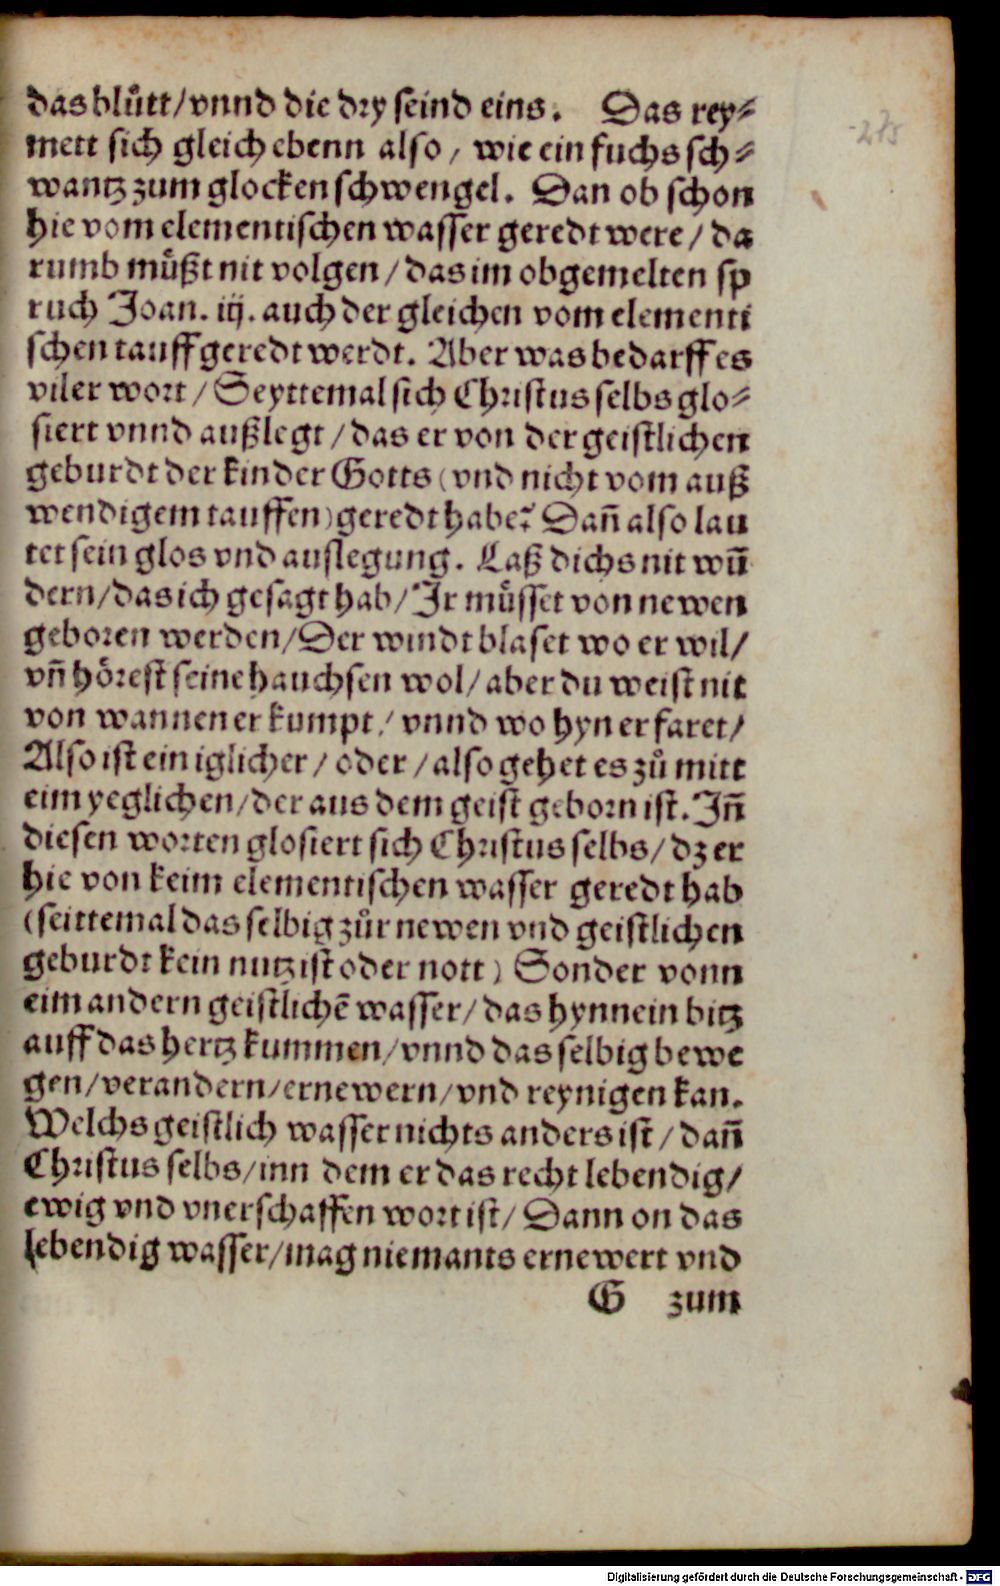 das blůtt/vnnd die dry seind eins. Das rey⸗
mett sich gleich ebenn also/ wie ein fuchs sch⸗
wantz zum glocken schwengel. Dan ob schon
hie vom elementischen wasser geredt were/ da
rumb můßt nit volgen/ das im obgemelten sp
ruch Joan. iij. auch der gleichen vom elementi
schen tauff geredt werdt. Aber was bedarff es
viler wort/ Seyttemal sich Christus selbs glo⸗
siert vnnd außlegt/ das er von der geistlichen
geburdt der kinder Gotts (vnd nicht vom auß
wendigem tauffen) geredt habe? Dañ also lau
tet sein glos vnd auslegung. Laß dichs nit wũ
dern/das ich gesagt hab/ Jr můsset von newen
geboren werden/Der windt blaset wo er wil/
vñ hőrest seine hauchsen wol/ aber du weist nit
von wannen er kumpt/ vnnd wo hyn er faret/
Also ist ein iglicher/ oder/ also gehet es zů mitt
eim yeglichen/der aus dem geist geborn ist. Jñ
diesen worten glosiert sich Christus selbs/ dz er
hie von keim elementischen wasser geredt hab
(seittemal das selbig zůr newen vnd geistlichen
geburdt kein nutz ist oder nott) Sonder vonn
eim andern geistlichẽ wasser/ das hynnein bitz
auff das hertz kummen/vnnd das selbig bewe
gen/verandern/ernewern/vnd reynigen kan.
Welchs geistlich wasser nichts anders ist/ dañ
Christus selbs/inn dem er das recht lebendig/
ewig vnd vnerschaffen wort ist/ Dann on das
lebendig wasser/mag niemants ernewert vnd
G zum
Digitalisierung gefördert durch die Deutsche Forschungsgemeinschaft - DFG